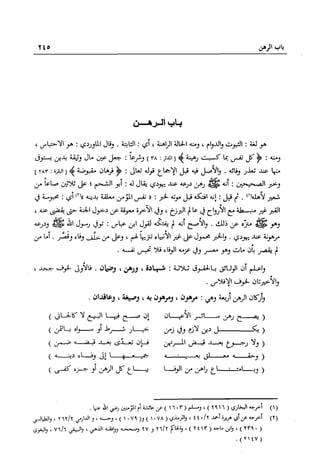 باب الرهن ٢٤٥
باب الرهـــن
هو لغة : الثبوت والدوام ، ومنه الحالة الراهنة ، أي : الثابتة . وقال الماوردي : هو الاحتباس ،
ومنه : ﴿ كل نفس بما كسبت رهينة ﴾ [ المدثر : ٣٨ ] وشرعاً : جعل عين مال وثيقة بدين يستوفى
منها عند تعذر وفائه . والأصل فيه قبل الإجماع قوله تعالى : ﴿ فرهان مقبوضة ﴾ [ البقرة : ٢٨٣ ]
وخبر الصحيحين : أنه ﷺ رهن درعه عند يهودي يقال له : أبو الشحم ؛ على ثلاثين صاعاً من
شعير لأهله(١) . ثم قيل : إنه افتكه قبل موته لخبر : « نفس المؤمن معلقة بدينه »(٢) أي : محبوسة في
القبر غير منبسطة مع الأرواح في عالم البرزخ ، وفي الآخرة معوقة عن دخول الجنة حتى يقضى عنه ،
وهو ﷺ منزه عن ذلك . والأصح أنه لم يفتكه لقول ابن عباس : توفي رسول الله ﷺ ودرعه
مرهونة عند يهودي . والخبر محمول على غير الأنبياء تنزيهاً لهم ، وعلى من خلف وفاء وقصر . أما من
لم يقصر بأن مات وهو معسر وفي عزمه الوفاء فلا تحبس نفسه .
واعلم أن الوثائق بالحقوق ثلاثة : شهادة ، ورهن ، وضمان . فالأول لخوف جحد ،
والأخيران لخوف الإفلاس .
وأركان الرهن أربعة وهي : مرهون ، ومرهون به ، وصيغة ، وعاقدان .
( يصـــح رهن ســـائر الأعيـــان إن صـــح فيهـــا البيـــع
( بكـــــــــل دين لازم وفي زمن خيـــار
( ولا رجـــوع بعـــد قبض المرتهن فـــإن تعـــدى
( وحقـــه
(١) أخرجه البخاري ( ٢٩١٦ ) ، ومسلم ( ١٦٠٣ ) عن عائشة أم المؤمنين رضي الله عنها .
(٢) أخرجه عن أبي هريرة أحمد ٤٤٠/٢ ، والترمذي ( ١٠٧٨ ) و ( ١٠٧٩ ) ، وحسنه ، والدارمي ٢٦٢/٢ ، والطيالسي
( ٢٣٩٠ ) ، وابن ماجه ( ٢٤١٣ ) ، والحاكم ٢٦/٢ و ٢٧ وصححه ووافقه الذهبي ، والبيهقي ٧٦/٦ ، والبغوي
( ٢١٤٧ ) .